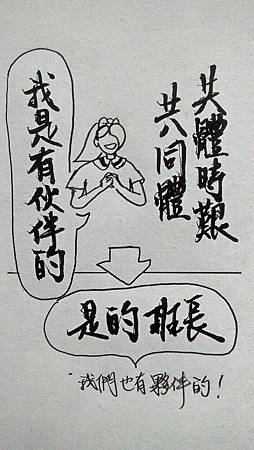 共體時艱
共同體
我是有伙伴的
是的班長
"我們也有夥伴的!